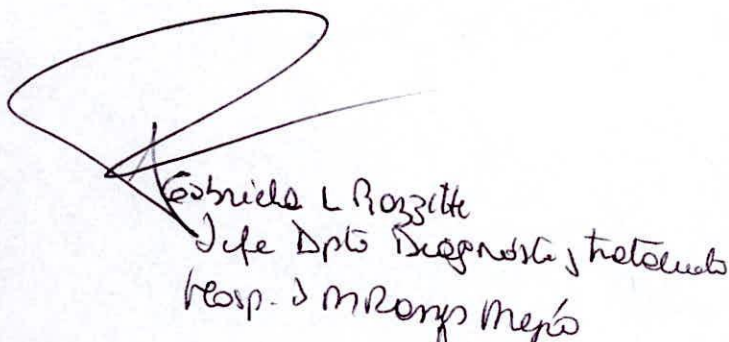 Gabriela L Rozzitte
Jefe Dpto Diagnóstico y tratamiento
Hosp. J M Ramos Mejía